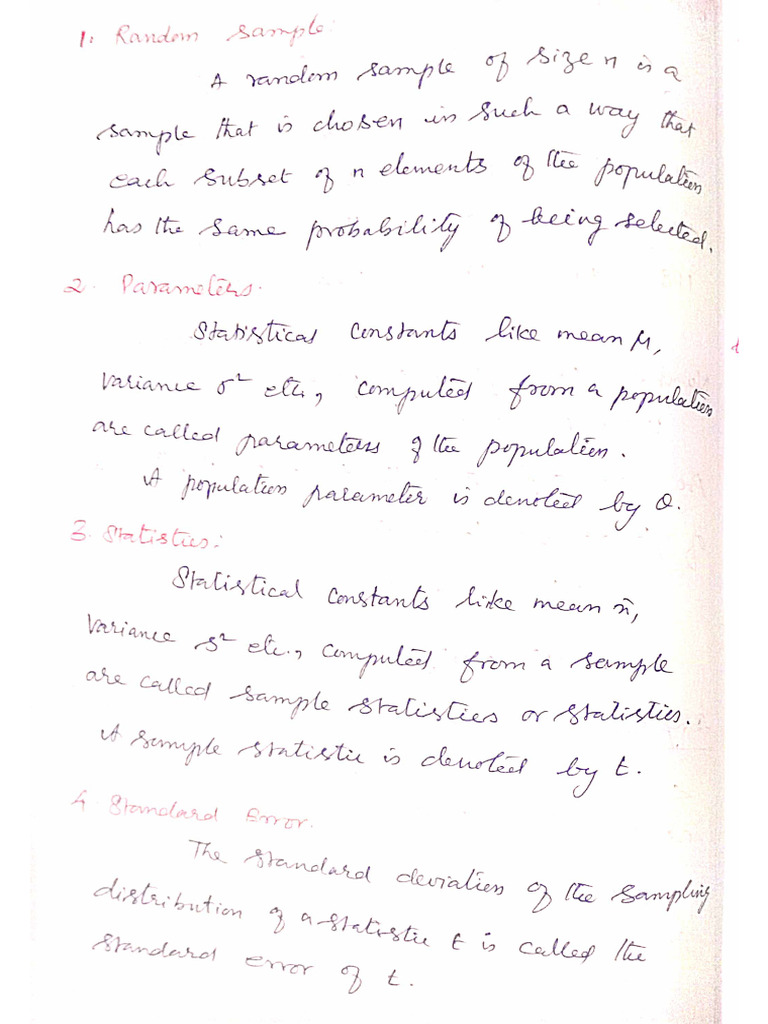 1. Random Sample:
A random sample of size n is a
sample that is chosen in such a way that
each subset of n elements of the population
has the same probability of being selected.
2. Parameters.
Statistical constants like mean μ,
variance σ² etc., computed from a population
are called parameters of the population.
A population parameter is denoted by θ.
3. Statistics:
Statistical constants like mean x̄,
Variance s² etc., computed from a sample
are called sample statistics or statistics.
A sample statistic is denoted by t.
4. Standard Error.
The standard deviation of the sampling
distribution of a statistic t is called the
standard error of t.